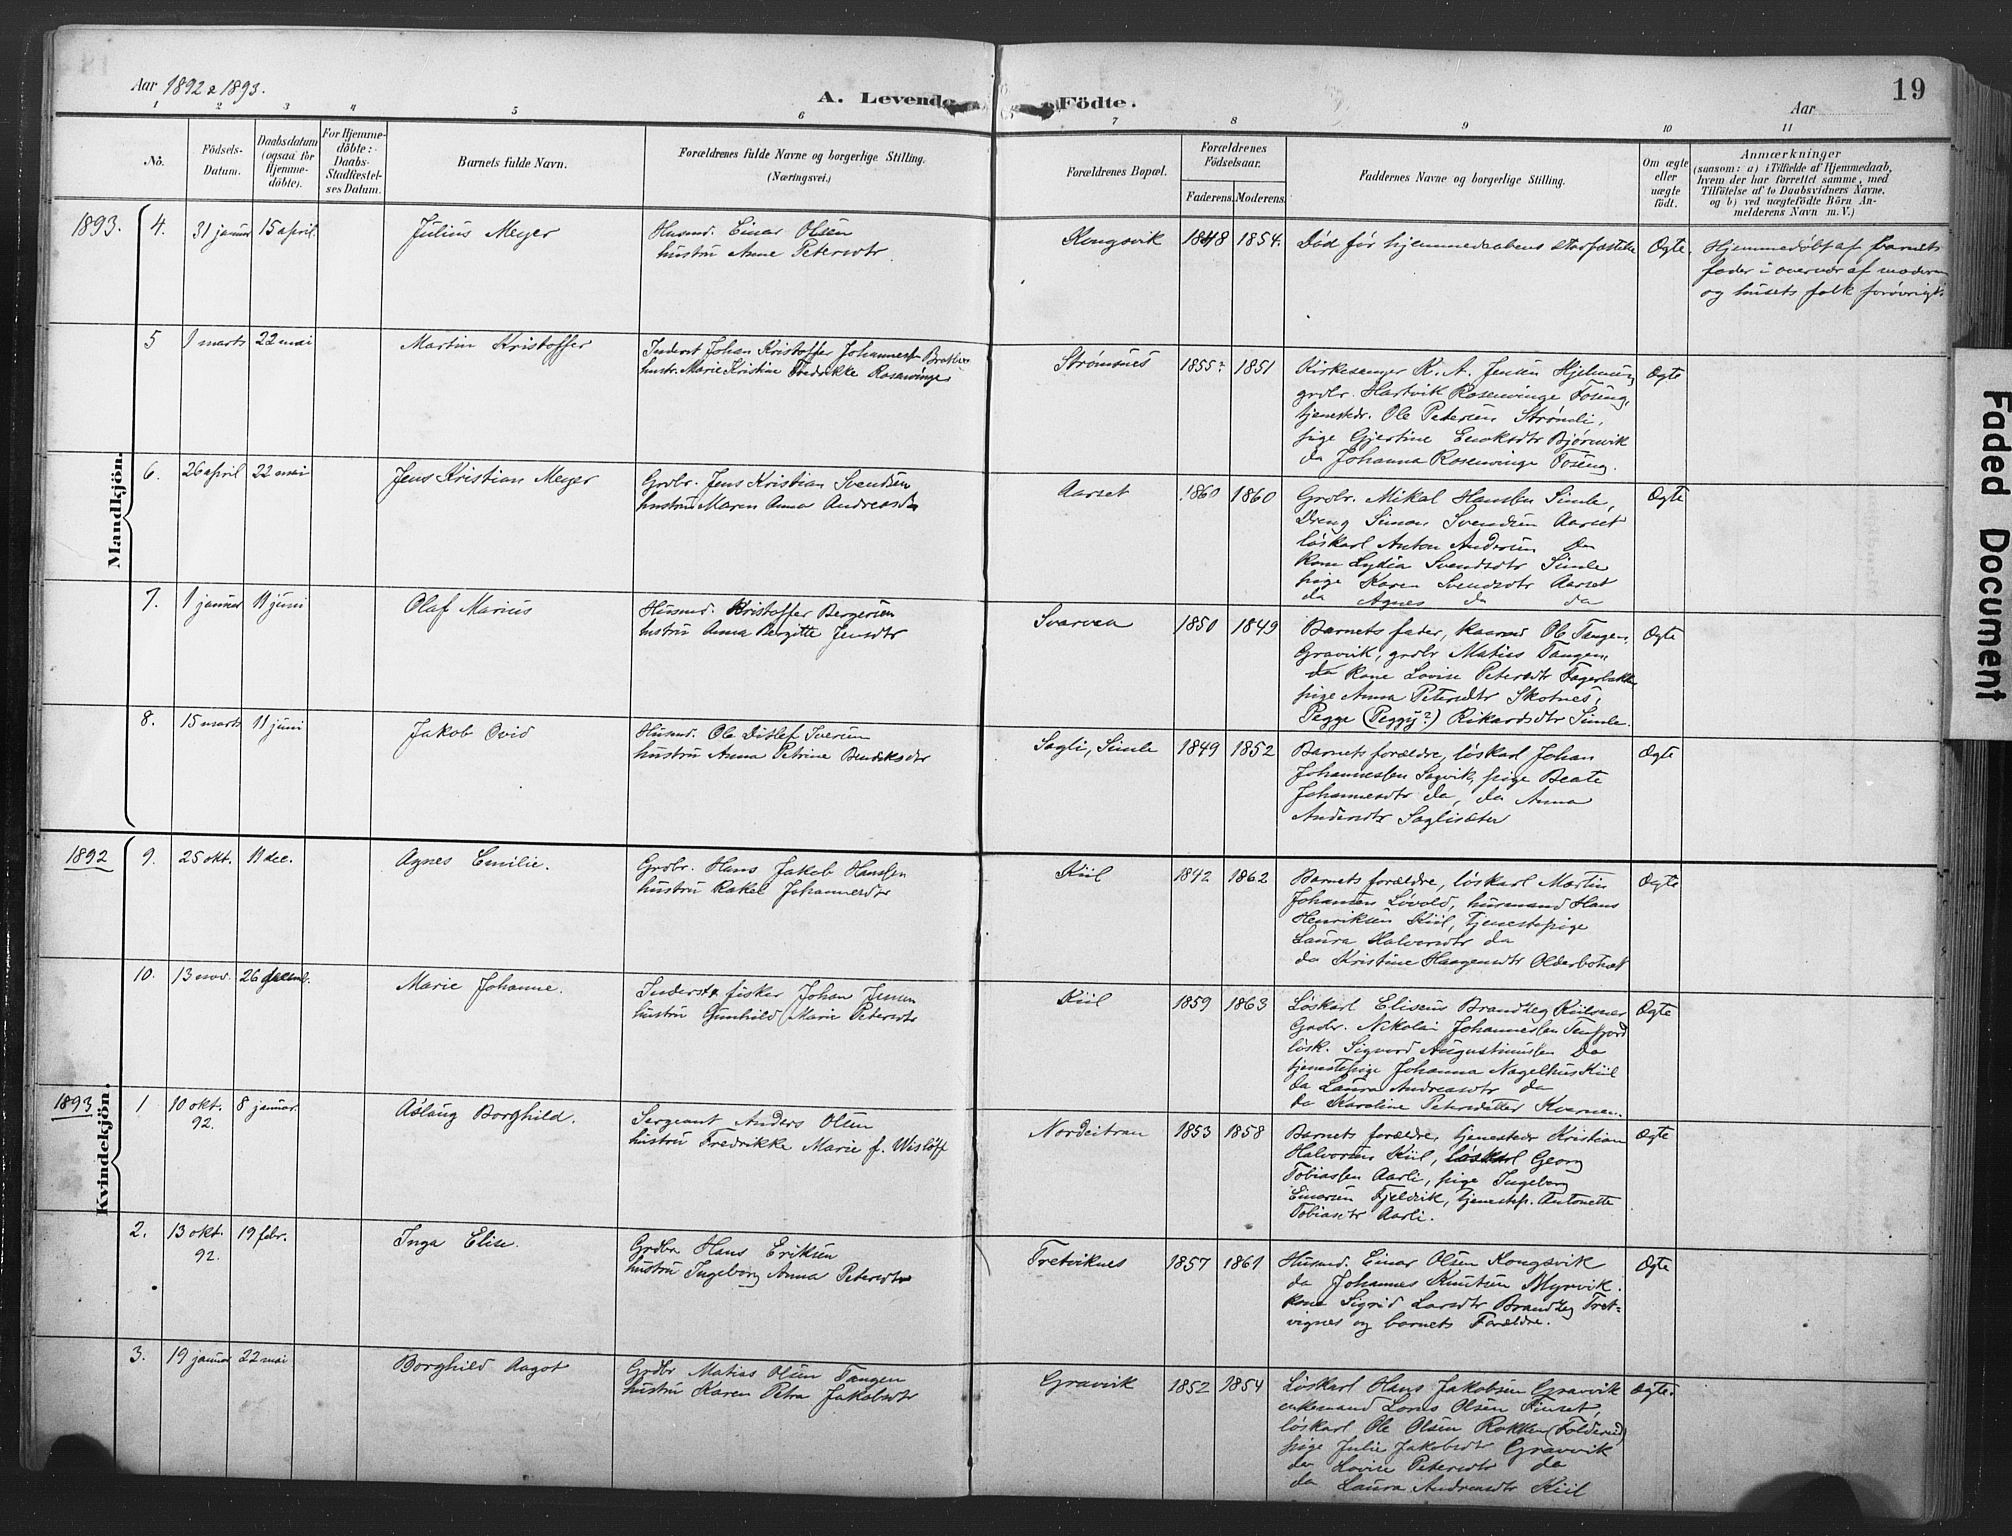 Aar 1892 & 1893.
A. Levende Födte.
Aar
19
1 2 3 4 5 6 7 8 9 10 11
No.
Födsels-Datum.
Daabsdatum (ogsaa for Hjemmedöbte).
For Hjemmedöbte: Daabs-Stadfæstelses Datum.
Barnets fulde Navn.
Forældrenes fulde Navne og borgerlige Stilling.
(Næringsvei.)
Forældrenes Bopæl.
Forældrenes Födselsaar.
Faderens. Moderens.
Faddernes Navne og borgerlige Stilling.
Om ægte eller uægte født.
Anmærkninger
(saasom: a) i Tilfælde af Hjemmedaab, hvem der har forrettet samme, med Tilföielse af to Daabsvidners Navne, og b) ved uægtefödte Börn Anmelderens Navn m. V.)
Mandkjön.
1893. 4. 31 januar 15 april. Julius Meyer
Husmd. Einar Olsen
hustru Anne Petersdtr.
Kongsvik 1848 1854. Død før hjemmedaabens stadfæstelse Ægte.
Hjemmedøbt af barnets
fader i overvær af moderen
og husets folk forøvrigt
5 1 marts 22 mai Martin Kristoffer
Inderst Johan Kristoffer Johannessen
hustr. Marie Kristine Fredrikke Rosenvinge
Strømsnes 1855? 1851 Ægte
Kirkesanger K. A. Jensen
grdbr. Hartvik Rosenvinge Foseng,
tjenestedr. Ole Petersen Strømli,
pige Gjertine Enoksdtr Bjørnvik
do Johanna Rosenvinge Foseng.
6. 26 april 22 mai Jens Kristian Meyer
Grdbr. Jens Kristian Svendsen
hustru Maren Anna Andreasdtr
Aarset 1860 1860 Ægte
Grdbr. Mikal Hansen Simle,
Dreng Simon Svendsen Aarset
løskarl Anton Andersen Do
Kone Lydia Svendsdtr Simle
pige Karen Svendsdtr Aarset
do Agnes do do
7. 1 januar 11 juni Olaf Marius
Husmd. Kristoffer Bergersen
hustru Anna Bergitte Jensdtr
Svarvea 1850 1849 Ægte
Barnets fader, Ole Tangen,
Gravvik, grdbr Matias Tangen,
do Kone Lovise Petersdtr Fagerbakken
pige Anna Petersdtr Skotnes,
Pegge (Peggy?) Rikardsdtr Simle.
8. 15 marts 11 juni Jakob Ovid
Husmd. Ole Ditlef Iversen
hustru Anna Petrine Bendiksdtr
Sagli, Simle 1849 1852 Ægte
Barnets forældre, løskarl Johan
Johannessen Sagvik, pige Beate
Johannesdtr do, do Anna
Andersdtr Saglisæter
Kvindekjön.
1892 9. 25 okt. 11 dec. Agnes Emilie.
Grdbr. Hans Jakob Hanssen
hustru Rakel Johannesdtr
Kiil 1842 1862 Ægte
Barnets forældre, løskarl Martin
Johansen Løvold, husmand Hans
Henriksen Kiil, tjenestepige
Laura Halvorsdtr do
do Kristine Haagensdtr
10. 13 nov. 26 decemb. Marie Johanne.
Inderst & fisker Johan Jensen
hustru Gunhild Marie Petersdtr
Kiil 1859 1863 Ægte
Løskarl Eliseus Brandtzeg Kiilsnes
Grdbr. Nikolai Johannessen Tenfjord
løsk. Sigvard Augustinussen Do
tjenestepige Johanna Nagelhus Kiil
do Laura Andreasdtr do
do Karoline Petersdatter Kvernen.
1893 1 10 okt. 92. 8 januar. Aslaug Borghild.
Sergeant Anders Olsen
hustru Fredrikke Marie f. Wisløff
1853 1858 Ægte
Barnets forældre, tjenestedr Kristian
Halvorsen Kiil, løskarl Georg
Tobiassen Aarli, pige Ingeborg
Einarsen Fjeldvik, tjenestep. Antonette
Tobiasdtr Aarli.
2. 13 okt. 92. 19 febr. Inga Elise.
Grdbr Hans Eriksen
hustru Ingeborg Anna Petersdtr
Tretviknes 1857 1861 Ægte
Husmd. Einar Olsen Kongsvik
do Johannes Knutsen Myrvik.
kone Sigrid Larsdtr Brandtzeg Tret-
vignes og barnets Forældre.
3. 19 januar 22 mai Borghild Aagot
Grdbr Matias Olsen Tangen
hustru Karen Petra Jakobsdtr
Gravvik 1852 1854 Ægte.
Løskarl Hans Jakobsen Gravvik
enkemand Lorns Olsen Finset,
løskarl Ole Olsen Rokken (Foldereid)
pige Julie Jakobsdtr Gravvik
do Lovise Petersdtr do
do Laura Andreasdtr Kiil
Faded Document